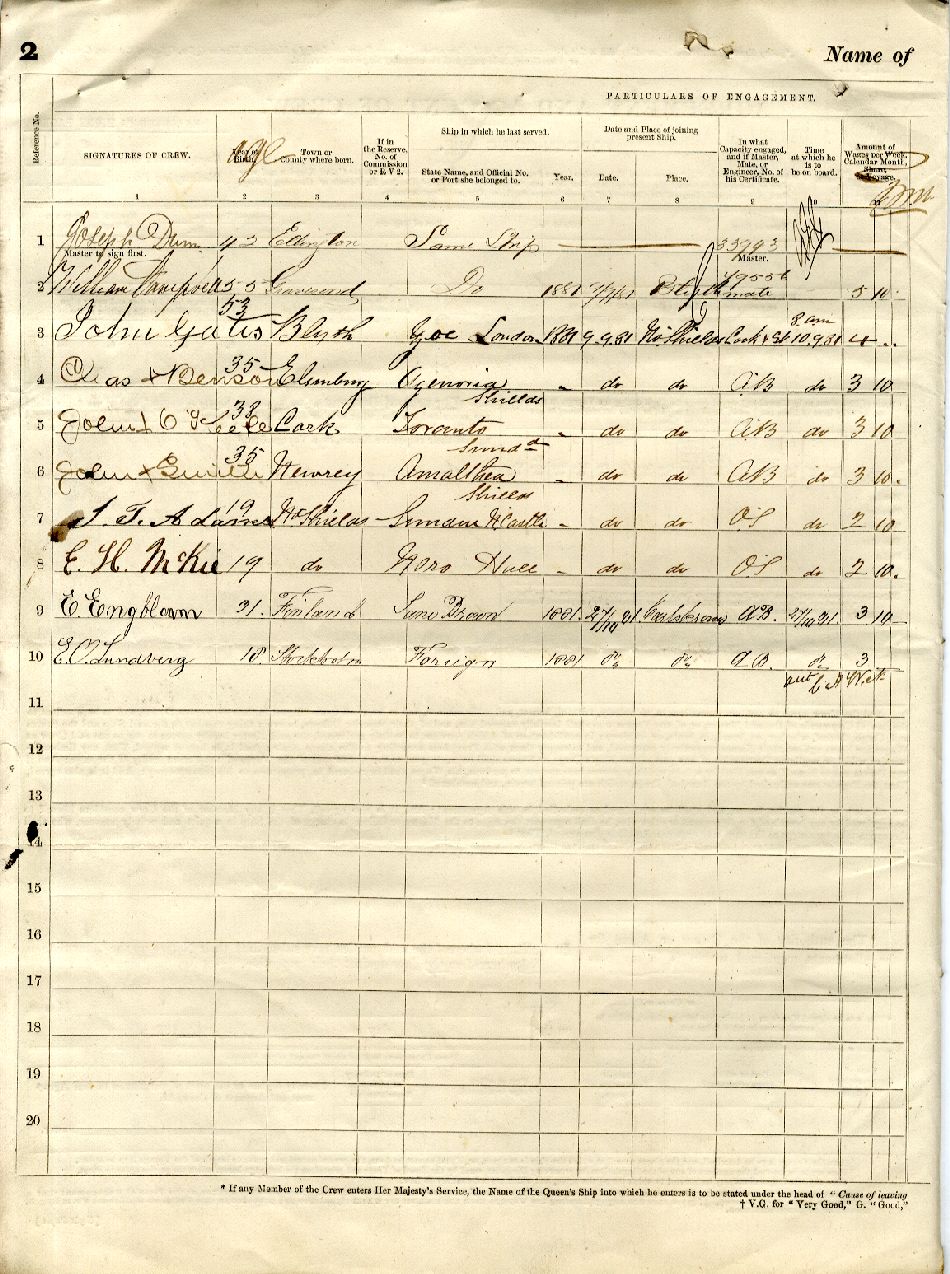 2 Name of
PARTICULARS OF ENGAGEMENT.
Reference No.
SIGNATURES OF CREW.
Year of Birth.
Age
Town or County where born.
If in the Reserve, No. of Commission or R V 2.
Ship in which he last served.
State Name, and Official No. or Port she belonged to.
Year.
Date and Place of joining present Ship.
Date.
Place.
In what Capacity engaged, and if Master, Mate, or Engineer, No. of his Certificate.
Time at which he is to be on board.
Amount of Wages per Week, Calendar Month, Share, or Voyage.
1 2 3 4 5 6 7 8 9 10
1 Joseph Dunn 42 Same Ship 33793
Master to sign first. Master.
2 William 55 Gravesend Do 1881 Blyth mate 5 10
53 8 am
3 John Gates Blyth London 1881 9.9.81 No Shields Cook & St 10.9.81 4
35
4 Chas + Benson Agenoria - do do AB do 3 10
Shields
33
5 John O'Toole Cork Toronto - do do AB do 3 10
Sund d
35
6 John + Smith Newrey Amalthea - do do AB do 3 10.
Shields
19
7 J. T. Adams No Shields - do do OS do 2 10
8 E. H. McKie 19 do Hero Hull - do do OS do 2 10.
9 E. Engblom 21. Finland 1881. 27/10 81. A.B. 27/10 81. 3 10
10 E. O. Lundberg 18 Stockholm Foreign 1881 do do A.B. do 3
11
12
13
14
15
16
17
18
19
20
* If any Member of the Crew enters Her Majesty's Service, the Name of the Queen's Ship into which he enters is to be stated under the head of "Cause of leaving
† V.G. for "Very Good," G. "Good,"